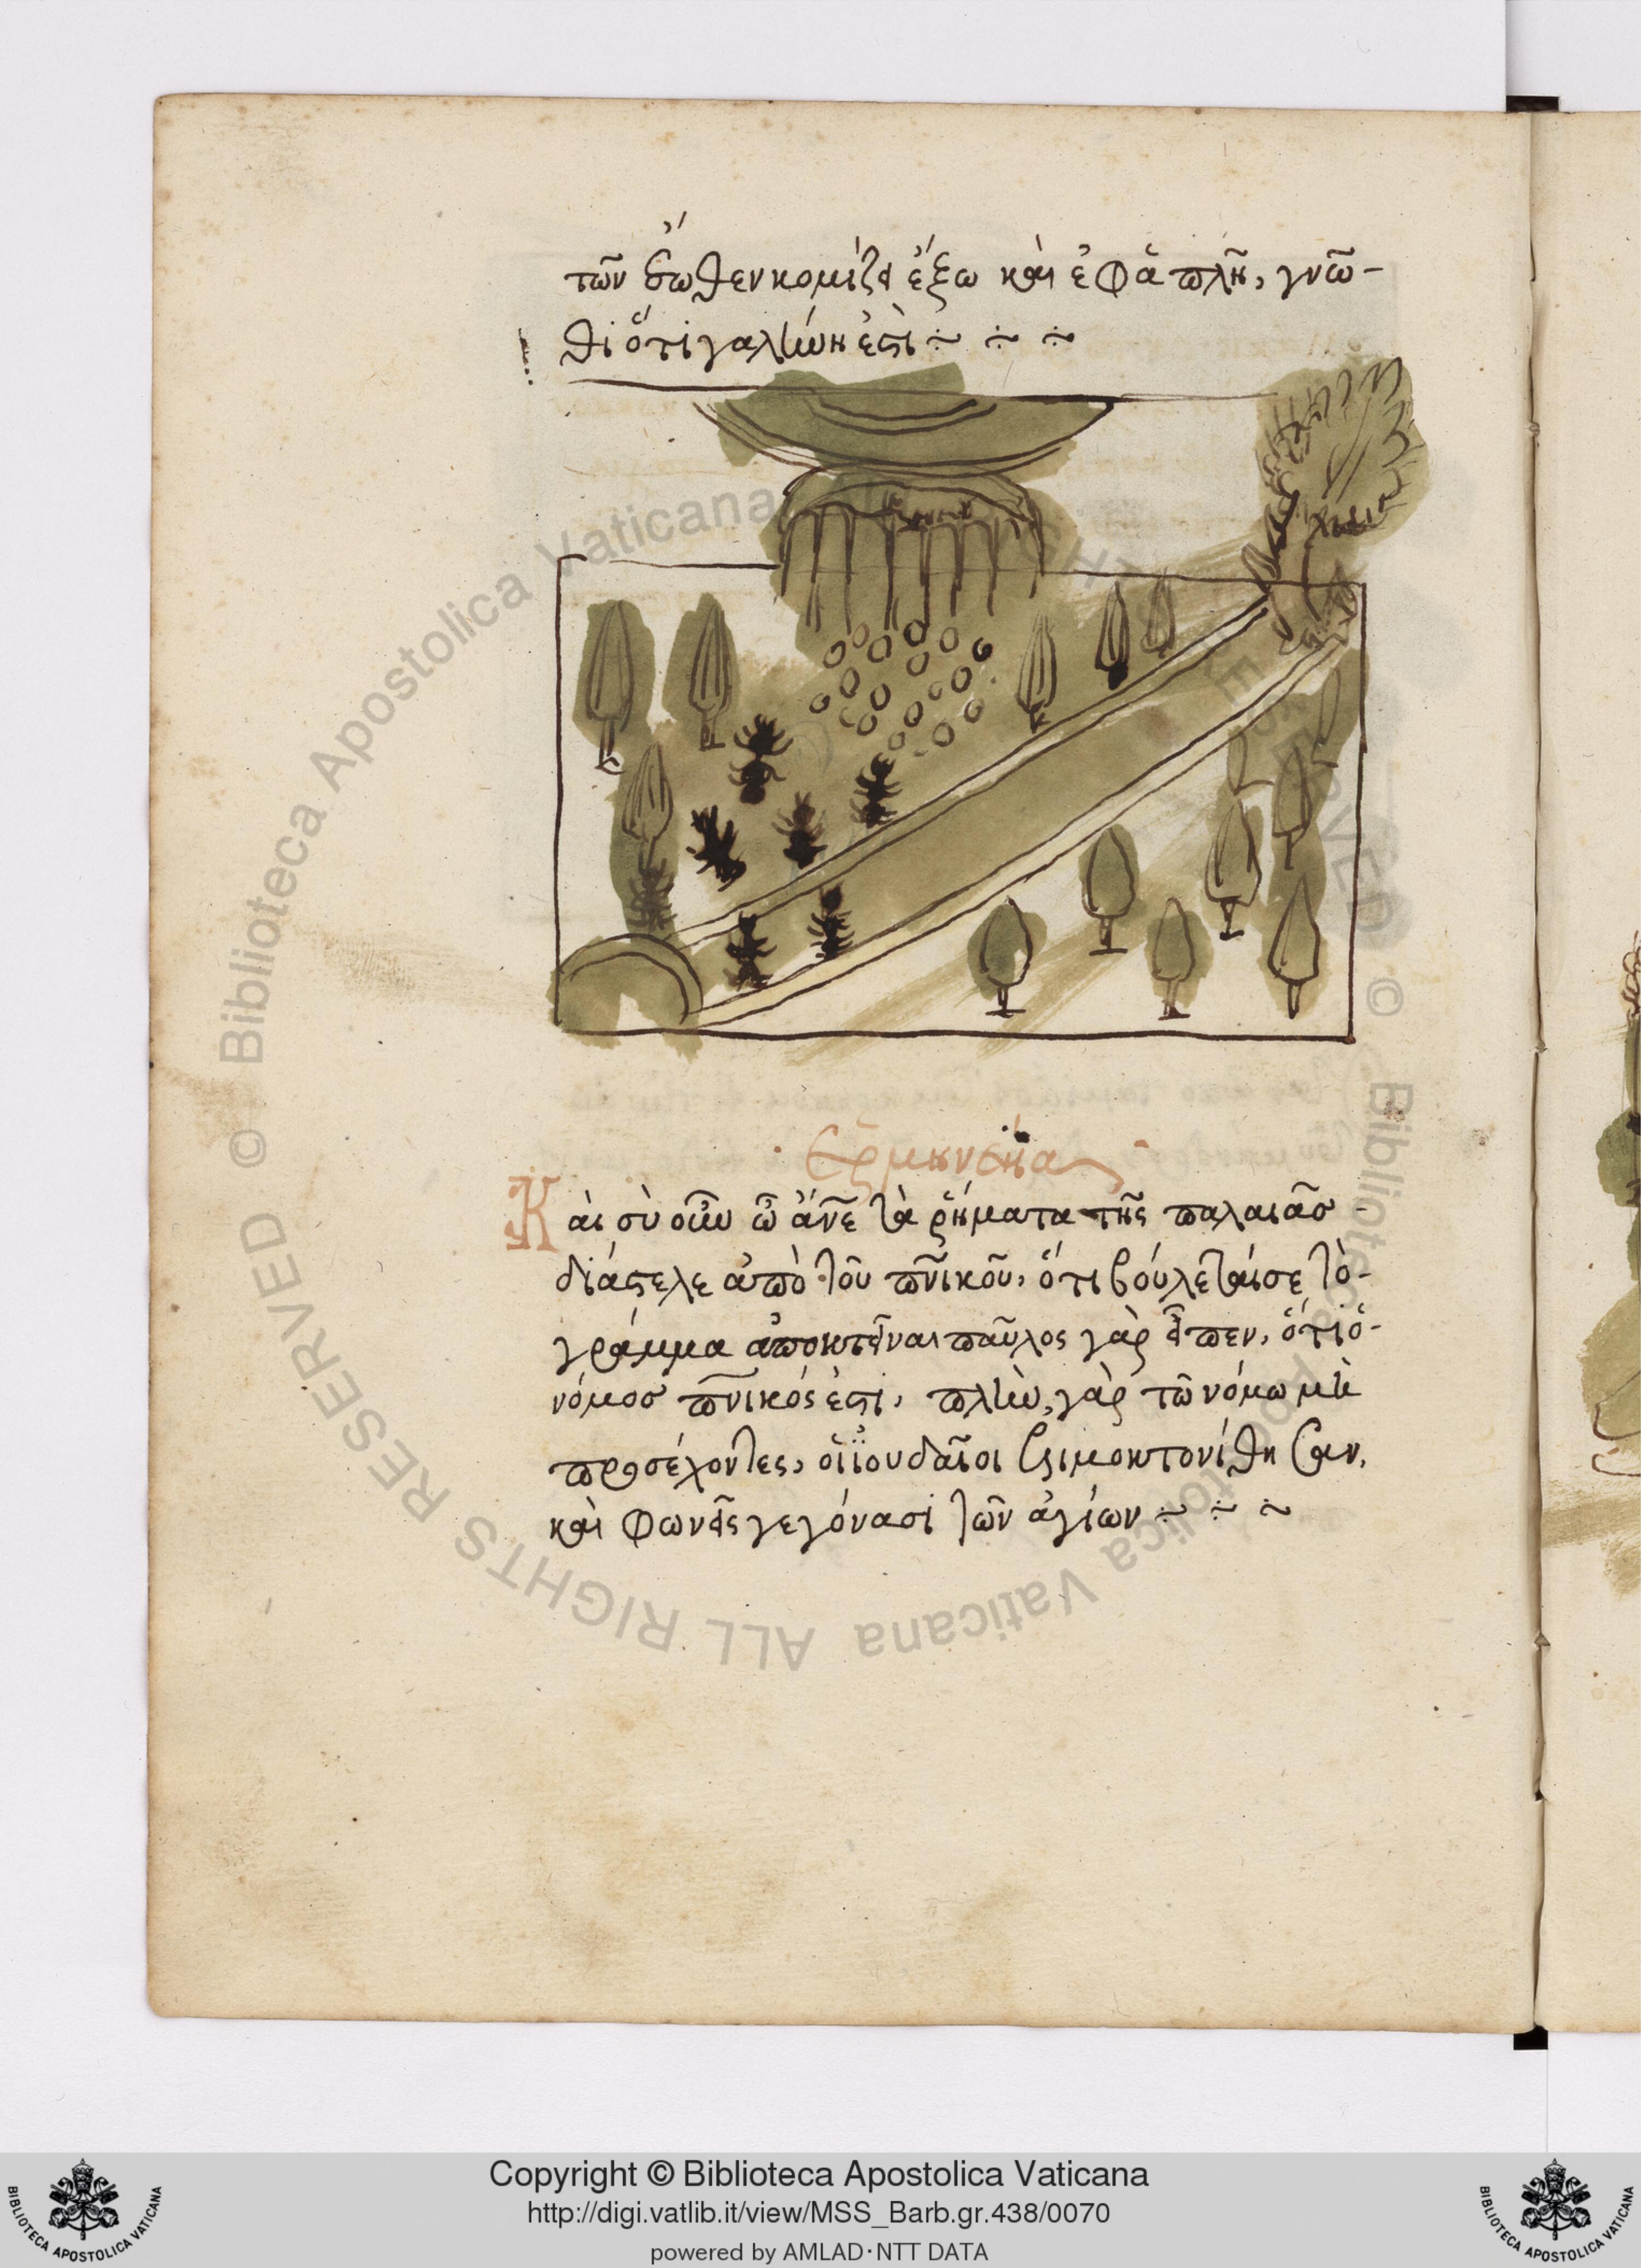 τῶν ἔσωθεν κομίζει ἔξω καὶ ἐφαπλῆ, γνῶ-
θι ὅτι γαλήνη ἐστι
Ἑρμηνεία
Καὶ σὺ οὖν ὦ ἄνε τὰ ῥήματα τῆς παλαιᾶσ
διάστελε ἀπὸ τοῦ πνικοῦ, ὅτι βούλεται σε τὸ-
γράμμα ἀποκτεῖναι παῦλος γὰρ εἶπεν, ὅτι ὁ-
νόμοσ πνικός ἐστι, πλὴν, γὰρ τῶ νόμω μὴ
προσέχοντες, οἱ ἰουδαῖοι λιμοκτονίθησαν,
καὶ φωνεῖς γεγόνασι τῶν ἁγίων
© Biblioteca Apostolica Vaticana
ALL RIGHTS RESERVED
Copyright © Biblioteca Apostolica Vaticana
http://digi.vatlib.it/view/MSS_Barb.gr.438/0070
powered by AMLAD·NTT DATA
BIBLIOTECA APOSTOLICA VATICANA
BIBLIOTECA APOSTOLICA VATICANA